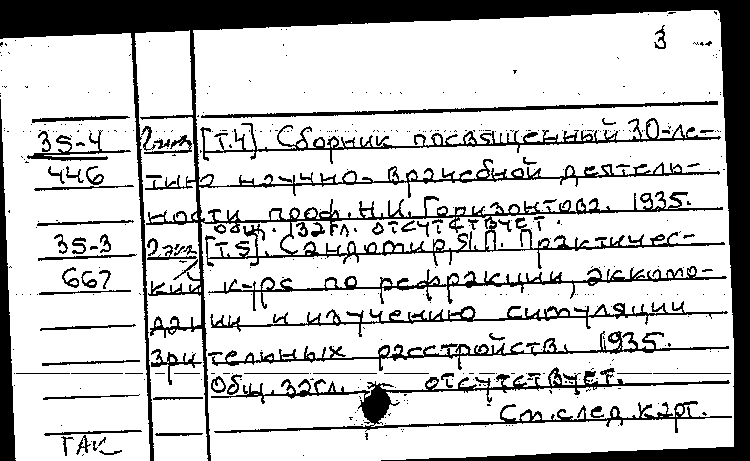 3
35-4 2 экз [Т.4]. Сборник посвященный 30-ле-
446 тию научно-врачебной деятель-
ности проф. Н.И. Горизонтова. 1935.
общ. загл. отсутствует.
35-3 2 экз [Т.5]. Сандомир, Я.П. Практичес-
667 кий курс по рефракции, аккомо-
дации и изучению симуляции
зрительных расстройств. 1935.
Общ. загл. отсутствует.
См. след. карт.